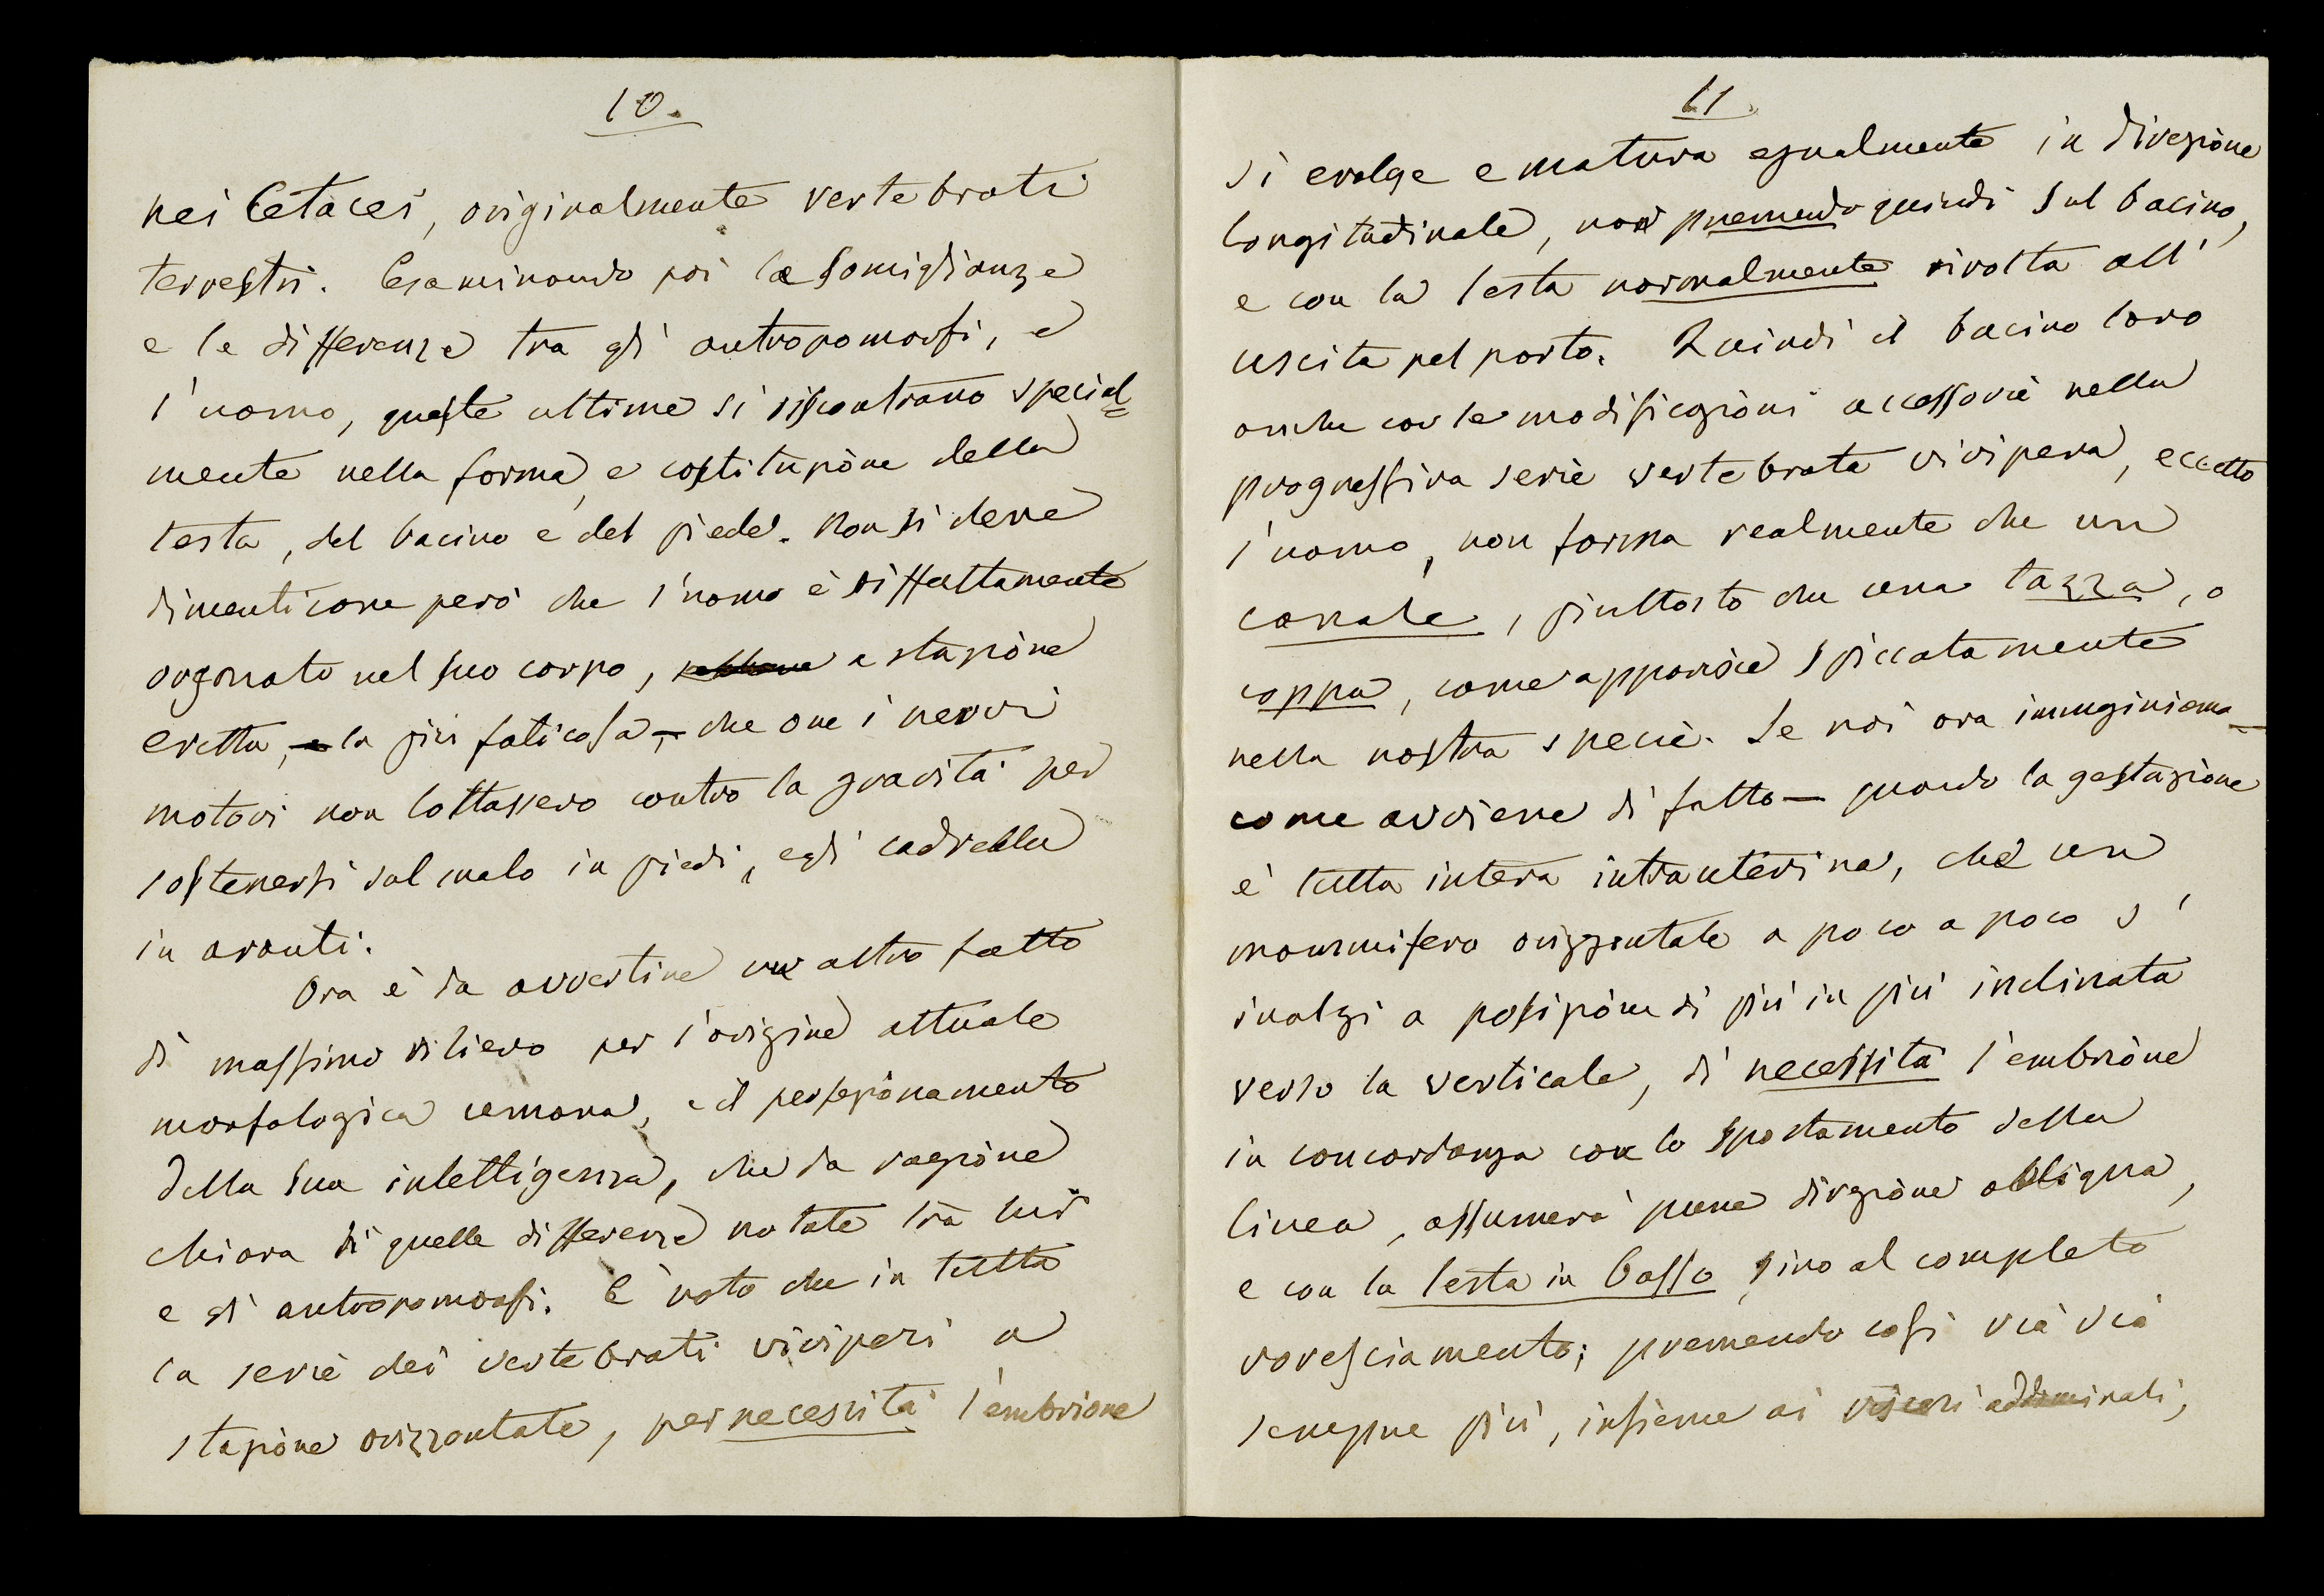 10.
nei Cetacei, originalmente vertebrati
terrestri. Esaminando poi le somiglianze
e le differenze tra gli antropomorfi, e
l'uomo, queste ultime si riscontrano special=
mente nella forma, e costituzione della
testa, del bacino e del piede. Non si deve
dimenticare però che l'uomo è siffattamente
organato nel suo corpo, a stazione
eretta, — la più faticosa, — che ove i nervi
motori non lottassero contro la gravità per
sostenersi sul suolo in piedi, egli cadrebbe
in avanti.
Ora è da avvertire un altro fatto
di massimo rilievo per l'origine attuale
morfologica umana, e il perfezionamento
della sua intelligenza, che da ragione
chiara di quelle differenze notate tra lui
e gli antropomorfi. È noto che in tutta
la serie dei vertebrati vivipari a
stazione orizzontale, per necessità l'embrione
11
si evolge e matura egualmente in direzione
longitudinale, non premendo quindi sul bacino,
e con la testa normalmente rivolta all'
uscita pel parto. Quindi il bacino loro
anche con le modificazioni accessorie nella
progressiva serie vertebrata vivipera, eccetto
l'uomo, non forma realmente che un
canale, piuttosto che una tazza, o
coppa, come apparisce spiccatamente
nella nostra specie. Se noi ora immaginiamo —
come avviene di fatto — quando la gestazione
è tutta intera intrauterina, che un
mammifero orizzontale a poco a poco s'
inalzi a posizione di più in più inclinata
verso la verticale, di necessità l'embrione
in concordanza con lo spostamento della
linea, assumerà pure direzione obliqua,
e con la testa in basso, sino al completo
rovesciamento; premendo così via via
sempre più, insieme ai visceri addominali,